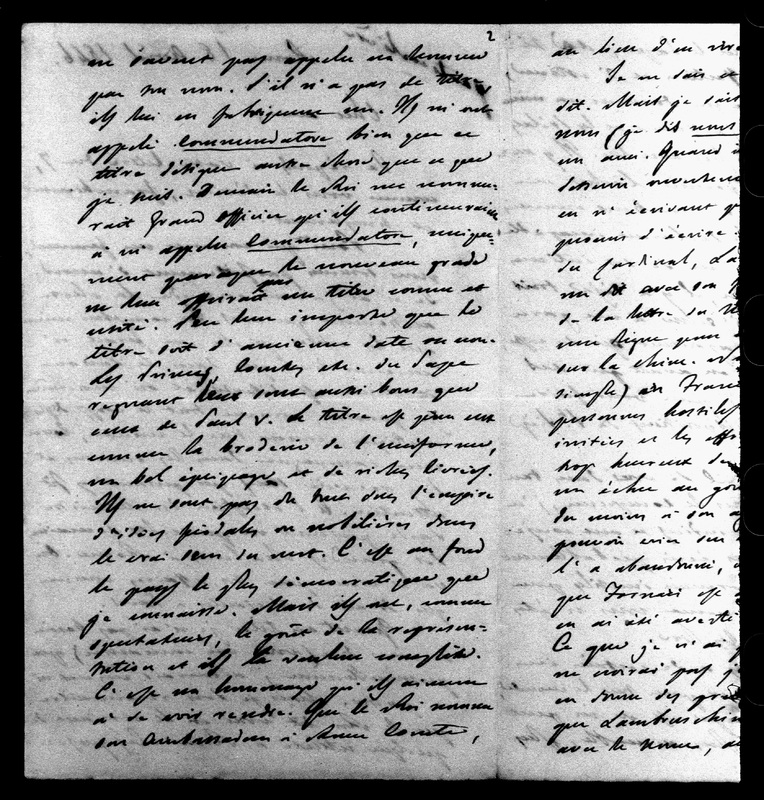 2
ne savent pas appeler un homme
par son nom. S'il n'a pas de titre,
ils lui en fabriquent un. Ils m'ont
appelé Commendatore bien que ce
titre désigne autre chose que ce que
je suis. Demain le Roi me nomme-
rait Grand officier qu'ils continueraient
à m'appeler Commendatore, unique-
ment parceque le nouveau grade
ne leur offrirait pas un titre connu et
usité. Peu leur importe que le
titre soit d'ancienne date ou non.
Les Princes, Comtes etc. du Pape
regnant leur sont aussi bons que
ceux de Paul V. Le titre est pour eux
comme la broderie de l'uniforme,
un bel équipage et de riches livrées.
Ils ne sont pas du tout dans l'empire
d'idées féodales ou nobilières dans
le vrai sens du mot. C'est au fond
le pays le plus démocratique que
je connaisse. Mais ils ont, comme
spectateurs, le goût de la représen-
tation et ils la veulent complète.
C'est un hommage qu'ils aiment
à se voir rendre. Que le Roi nomme
son Ambassadeur à Rome Comte,
au lieu d'en
Je ne sais
dit. Mais je sais
nous (je dis nous
un ami. Quand
en n'écrivant
d'écrire
du Cardinal, La
me dit avec son
de la lettre du
une ligne pour
sur la chine.
simple) en France
personnes hostiles
invitées et les
trop heureux de
un échec au
du moins à son
pouvoir
l'a abandonné,
que Fornari est
en ai été averti
Ce que je n'ai
ne croirai pas
en donne des
que Lambruschini
avec le nonce,